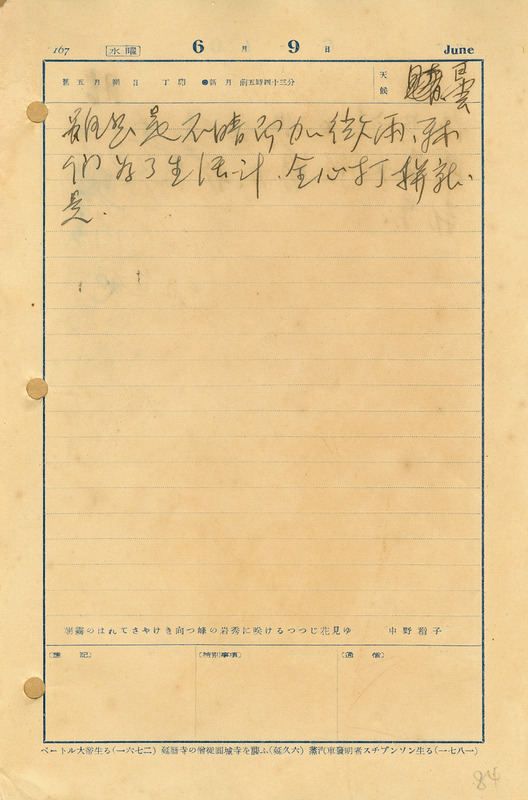 167 水曜 6月9日 June
舊五月朔日 丁卯 ●新月前五時四十三分
天候 曇
雖是不晴即加微雨、我
們為了生活計、全心打拼就
是.
朝霧のはれてさやけき向つ峰の岩秀に咲けるつつじ花見ゆ 中野稻子
〔雜記〕 〔特別事項〕 〔通信〕
ペートル大帝生る(一六七二) 延暦寺の僧徒園城寺を襲ふ(延久六) 蒸汽車發明者スチブンソン生る(一七八一)
84